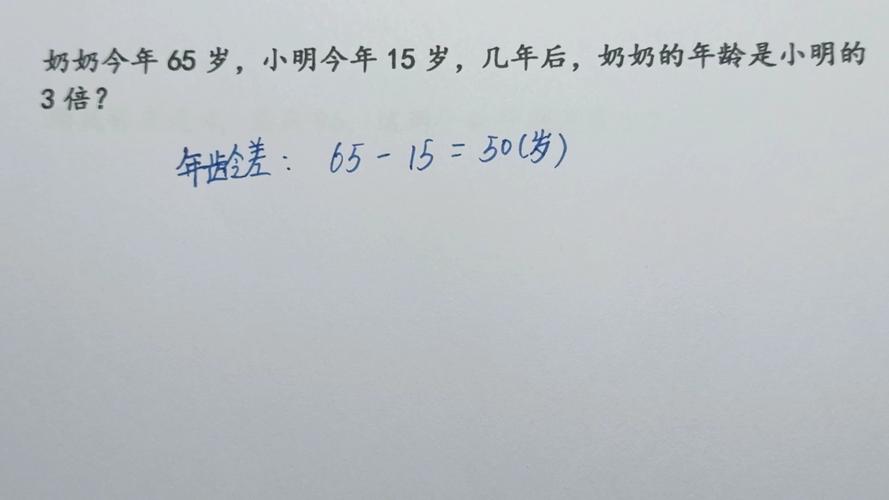 奶奶今年 65 岁，小明今年 15 岁，几年后，奶奶的年龄是小明的
3 倍？
年龄差： 65 - 15 = 50(岁)